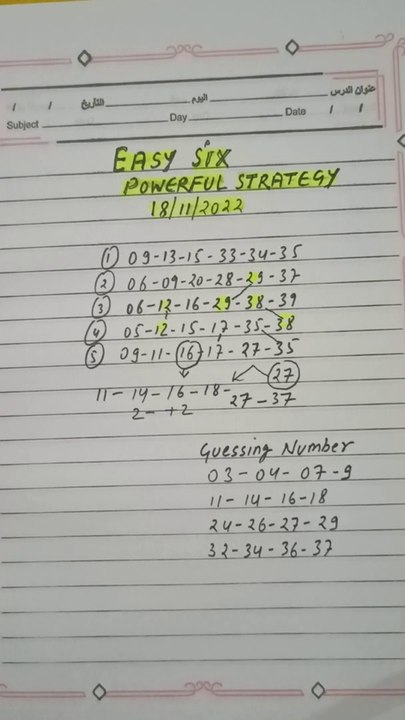 عنوان الدرس
اليوم
التاريخ
/ /
Subject Day Date / /
EASY SIX
POWERFUL STRATEGY
18/11/2022
① 09-13-15-33-34-35
② 06-09-20-28-29-37
③ 06-12-16-29-38-39
④ 05-12-15-17-35-38
⑤ 09-11-16-17-27-35
27
11-14-16-18-27-37
2- +2
Guessing Number
03-04-07-9
11-14-16-18
24-26-27-29
32-34-36-37